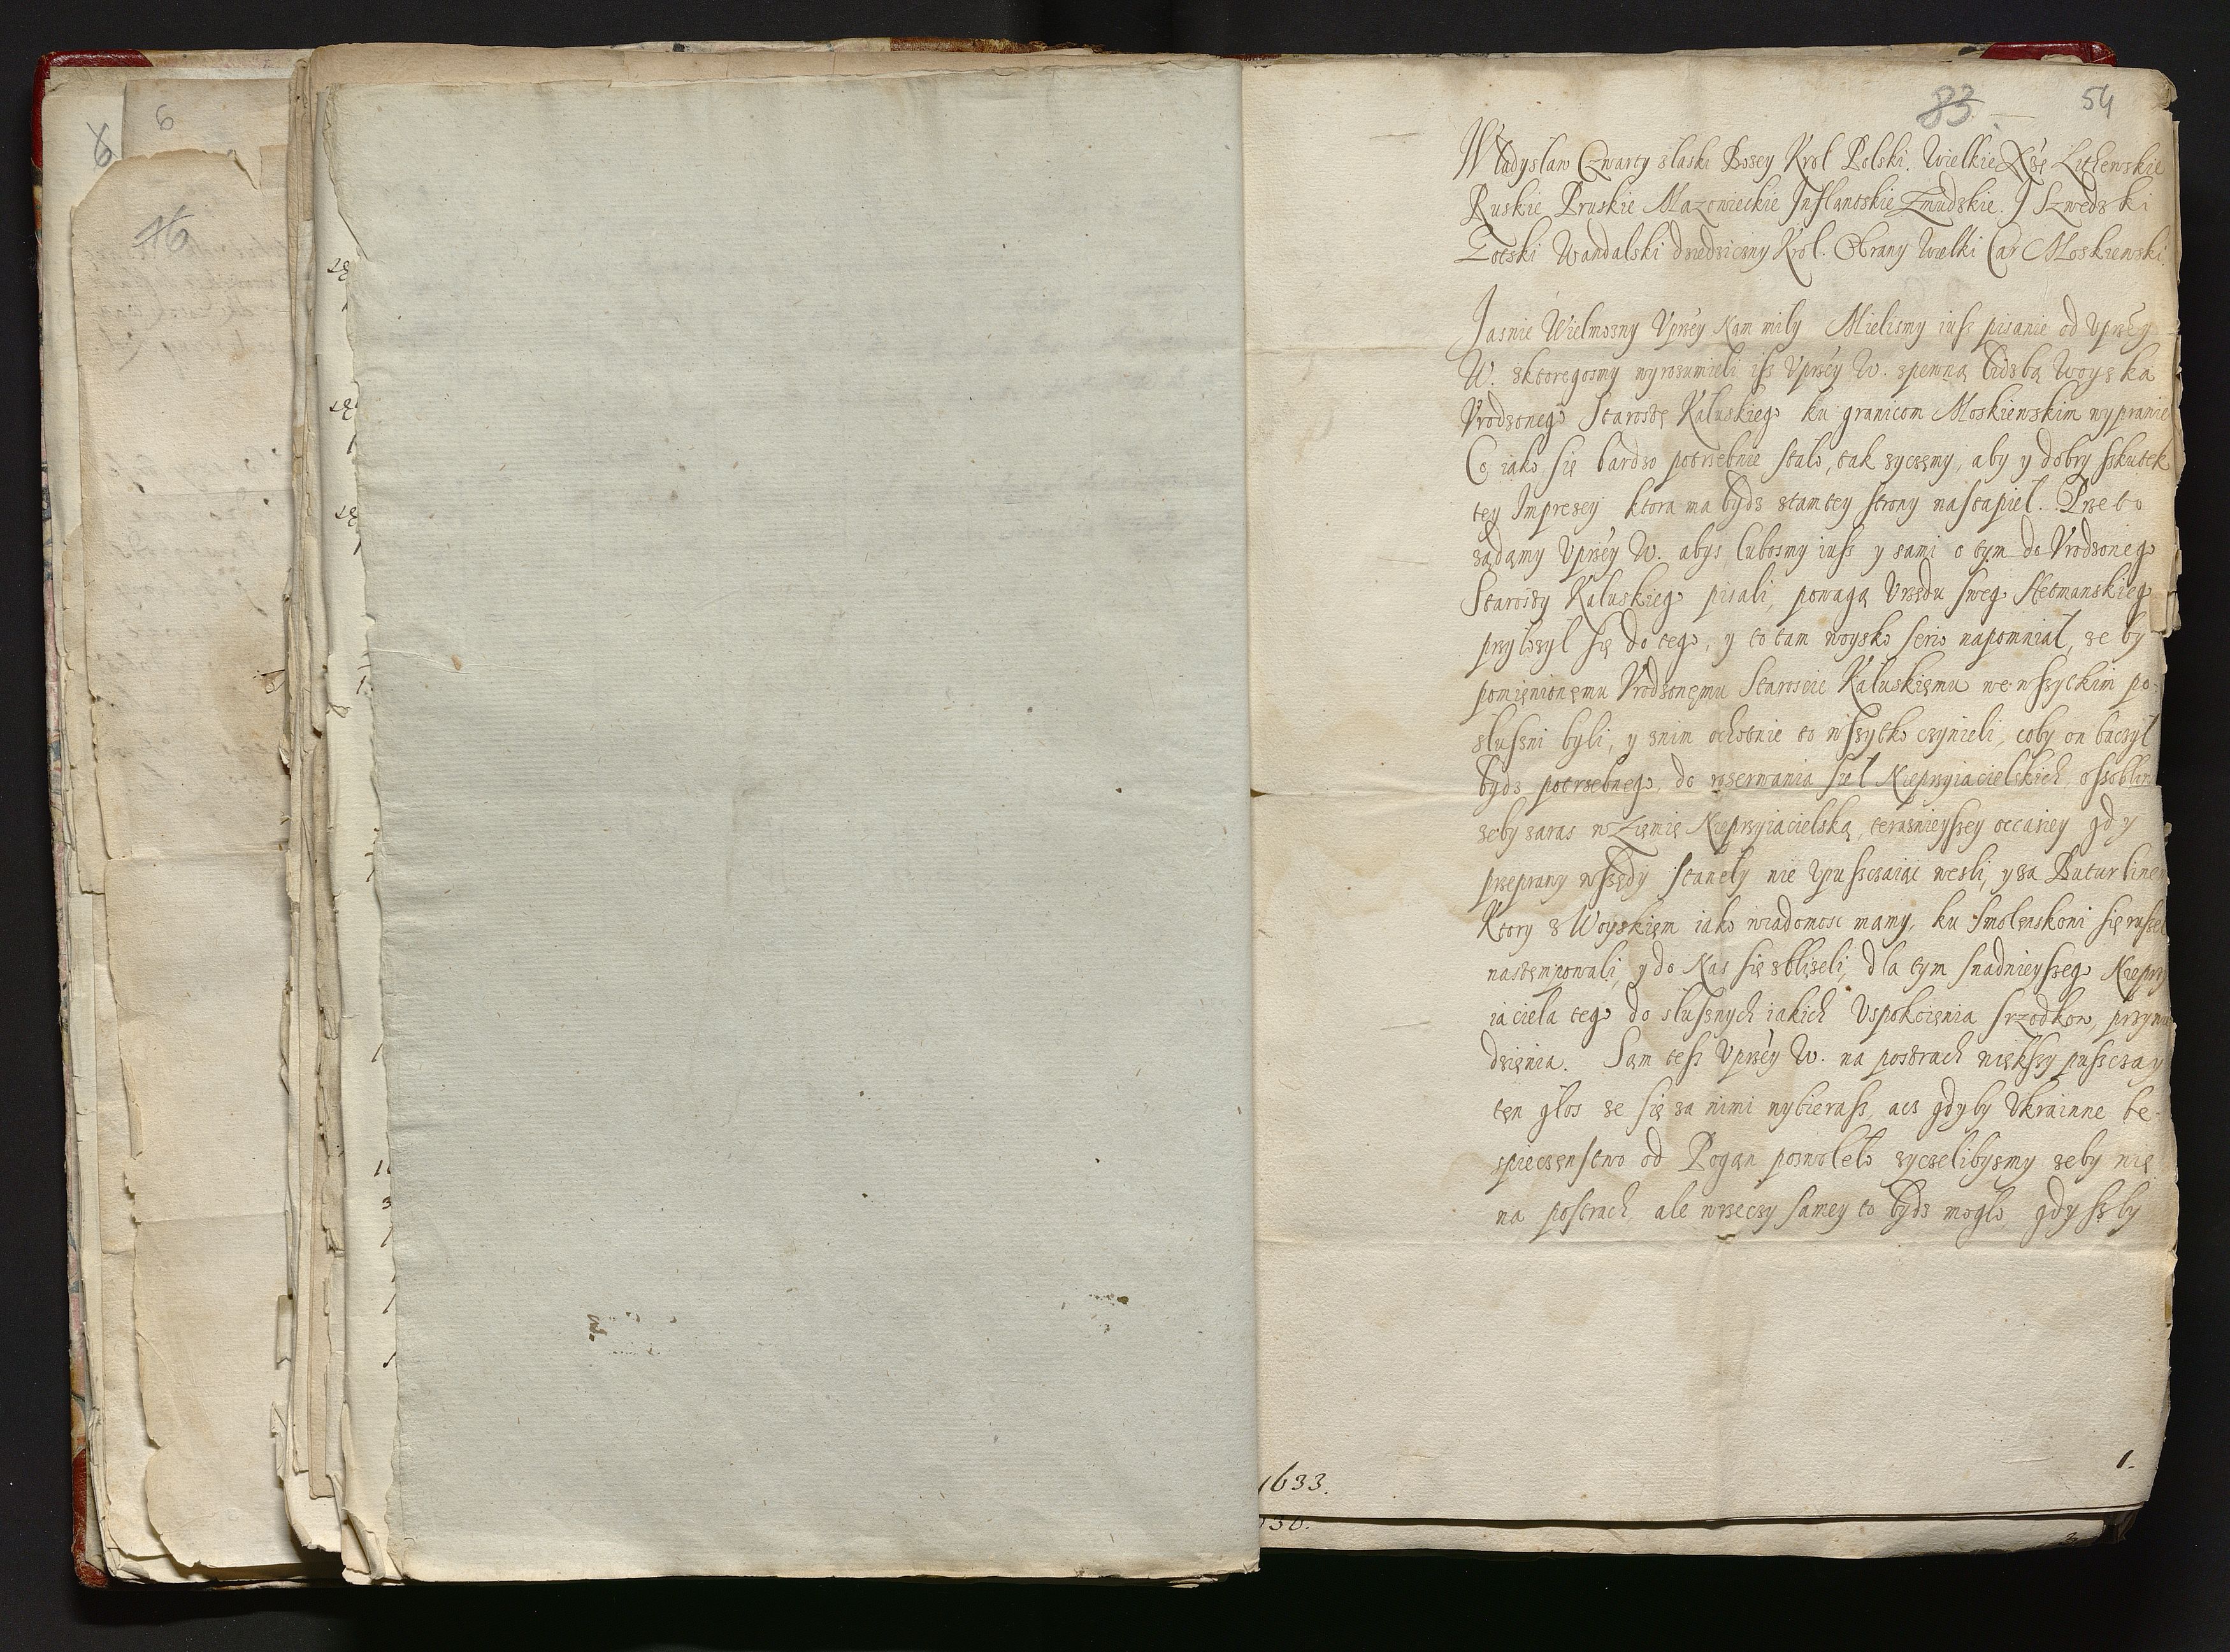 83. 54
6 6
16
Władysław Czwarty z łaski Bozey Krol Polski. Wielkie Xżę Lithewskie
Ruskie Pruskie Mazowieckie Inflantskie Zmudskie. I Szwedski
Gotski Wandalski dziedziczny Krol. Obrany Wielki Car Moskiewski.
Jasnie Wielmozny Vprzey Nam miły Mielismy iusz pisanie od Vprzey
W. zktoregosmy wyrozumieli isz Vprzey W. zpewną liczbą Woyska
Vrodzonego Starostę Kałuskiego ku granicom Moskiewskim wyprawie
Co iako się bardzo potrzebnie stało, tak zyczęmy, aby y dobry sskutek
tey Imprezey ktora ma bydz ztamtey strony nastąpieł. Przeto
ządąmy Vprzey W. abyś lubosmy iusz y sami o tym do Vrodzonego
Starosty Kałuskiego pisali, powagą Vrzędu swego Hetmanskiego
przyłozył się do tego, y to tam woysko serio napomniał, ze by
pomięnionęmu Vrodzonęmu Staroscie Kałuskięmu we wszyckim po-
słuszni byli, y znim ochotnie to wszytko czynieli, coby on baczył
bydz potrzebnego, do rozerwania sieł Nieprzyiacielskich, ossobliw
zeby zaraz w Zięmię Nieprzyiacielską, teraznieyszey occasiey gdy
przeprawy wszędy stanęły nie vpuszczaiąc weszli, y za Buturlinem
Ktory z Woyskięm iako wiadomosc mamy, ku Smolęnskowi się ruszeł
nastęmpowali, y do Nas się zbliżeli, dla tym snadnieyszego Nieprzy
iaciela tego do słusznych iakich Vspokoięnia srzodkow, przymu
dzięnia. Sąm tesz Vprzey W. na postrach większy puszczay
tęn głos ze się za nimi wybierasz, acz gdyby Vkrainne be-
zpieczęnstwo od Pogąn pozwoleło zyczelibysmy zeby nie
na postrach ale wrzeczy samey to bydz mogło, gdyszby
1.
1633.